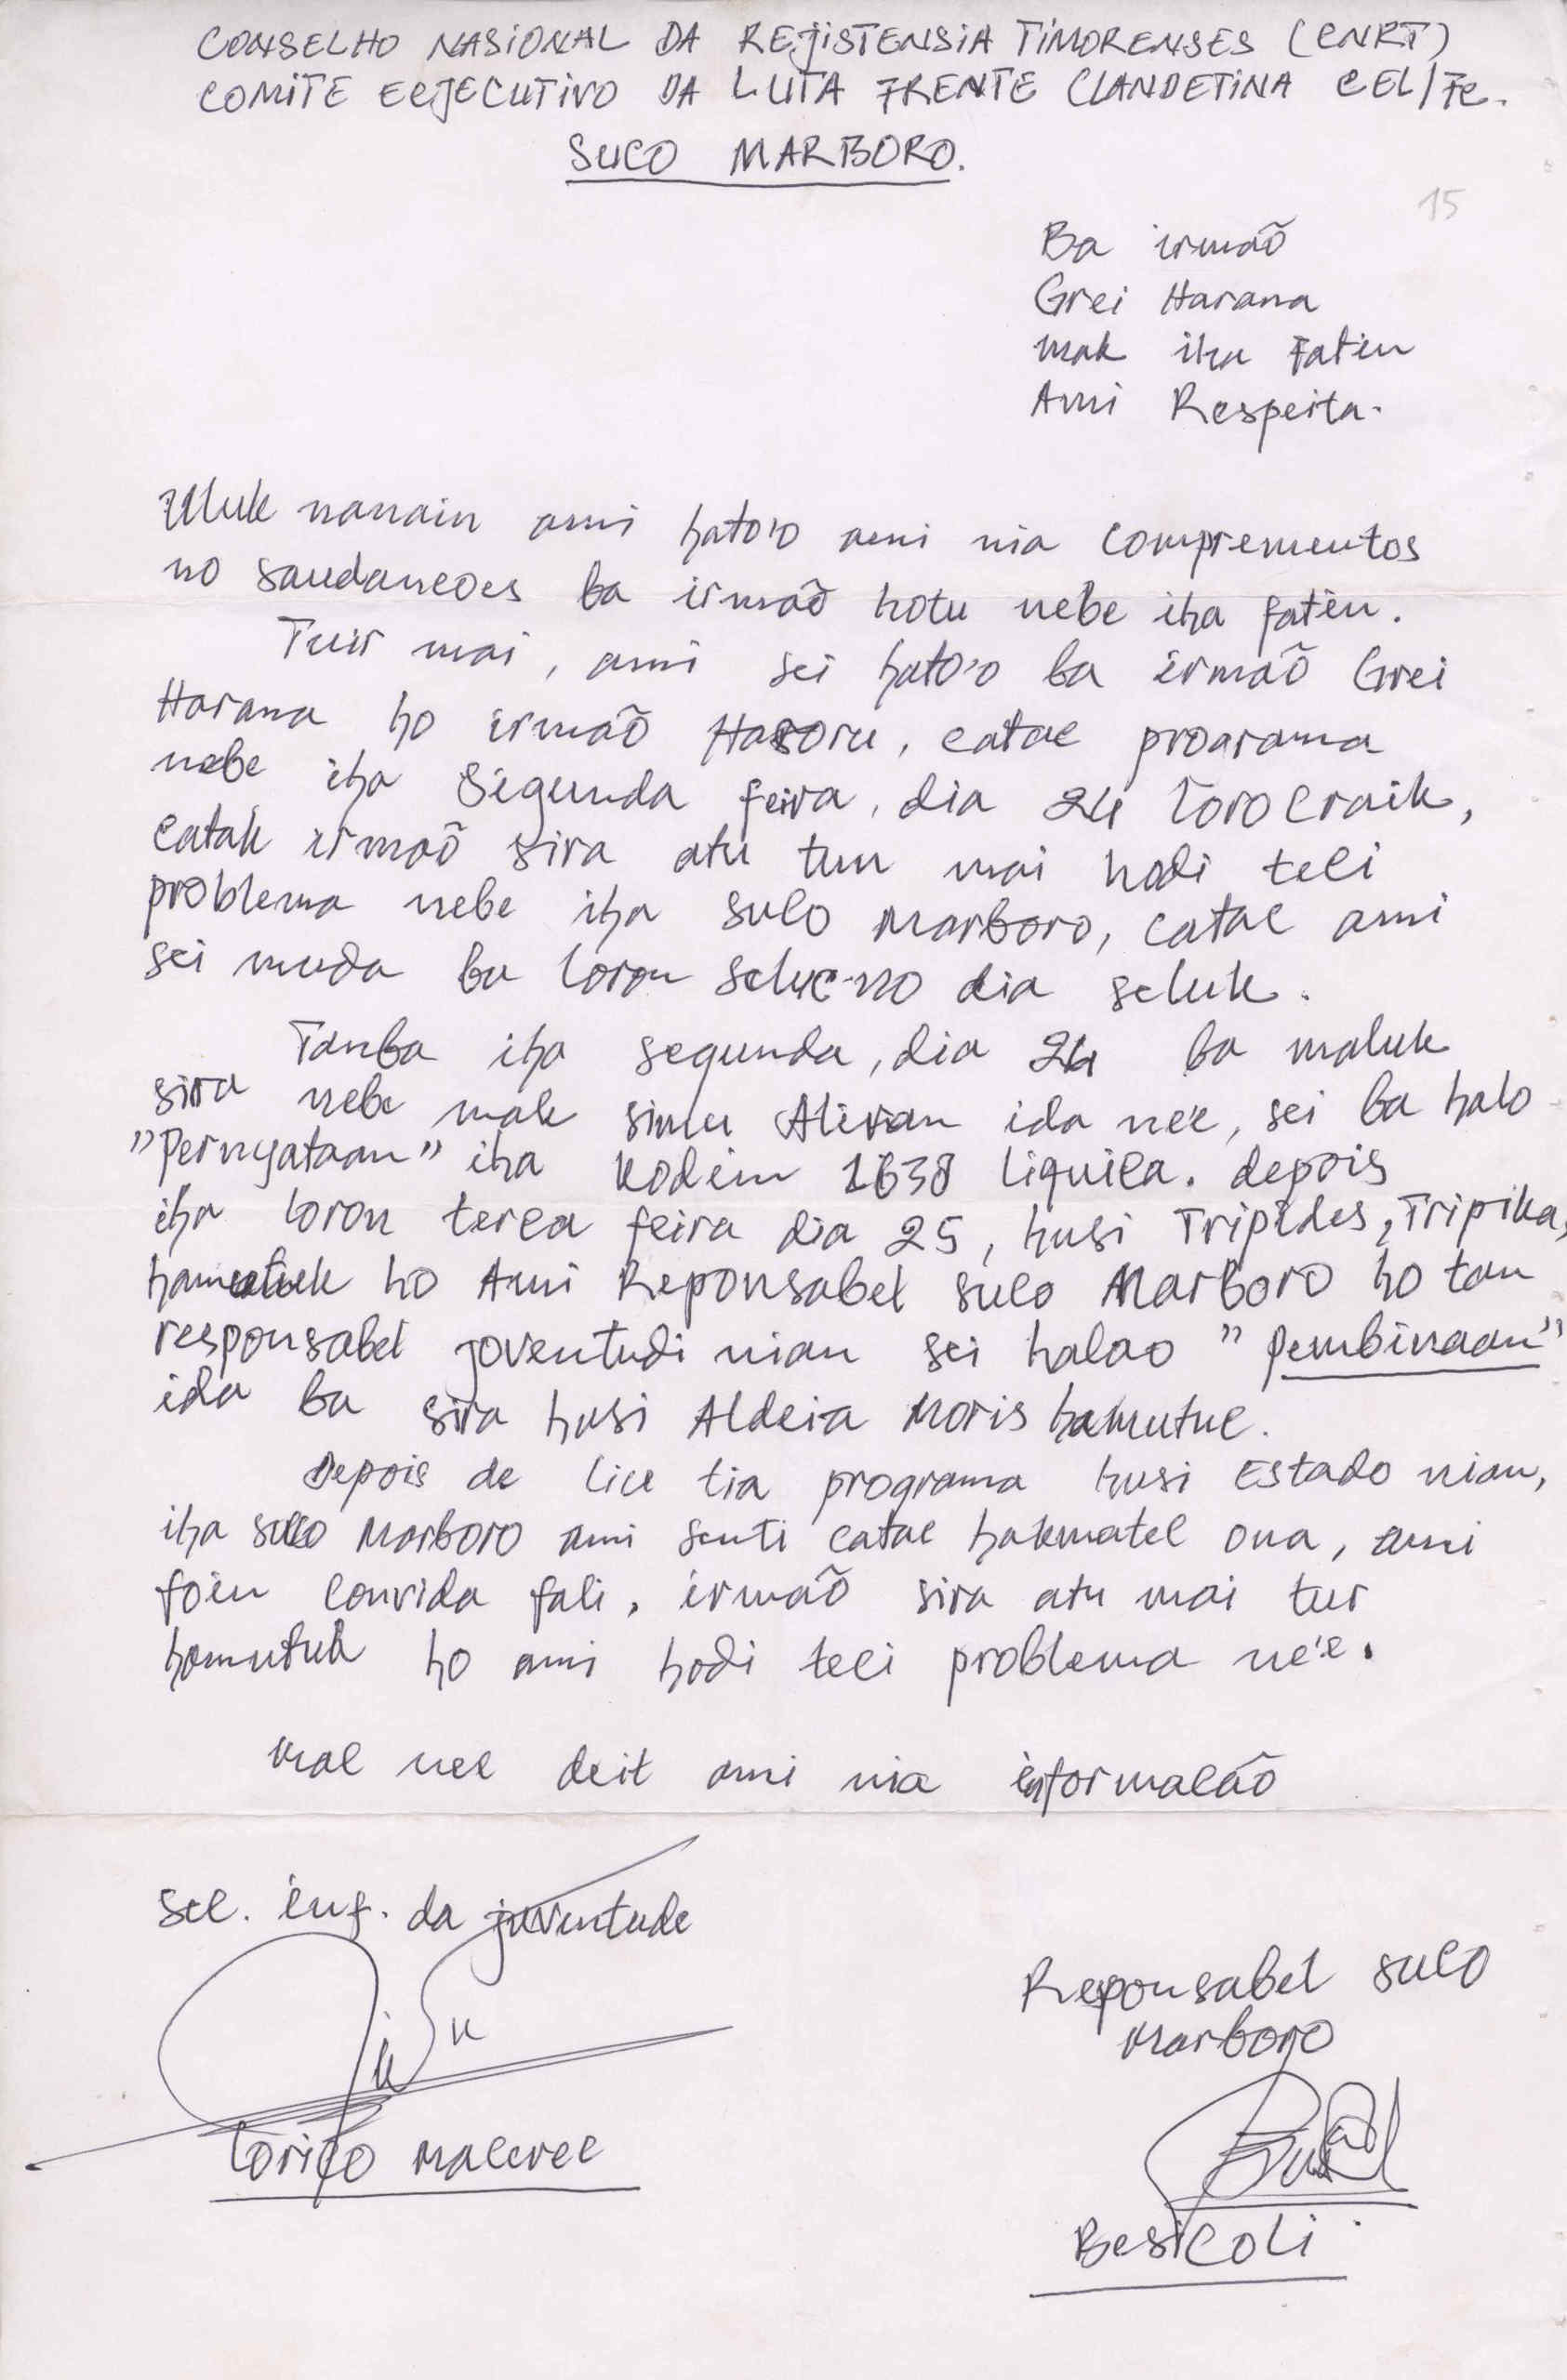 CONSELHO NASIONAL DA REJISTENSIA TIMORENSES (CNRT)
COMITE EEJECUTIVO DA LUTA FRENTE CLANDETINA CEL/Fc.
SUCO MARBORO.
15
Ba irmaõ
Grei Harana
mak iha Fatin
Ami Respeita.
Uluk nanain ami hato'o ami nia comprementos
no saudaneoes ba irmaõ hotu nebe iha fatin.
Tuir mai, ami sei hato'o ba irmaõ Grei
Harana ho irmaõ Hasoru, catac proarama
nebe iha Segunda feira, dia 24 loro craik,
catak irmaõ sira atu tun mai hodi teci
problema nebe iha suco Marboro, catac ami
sei muda ba loron seluc no dia seluk.
Tanba iha segunda, dia 24 ba maluk
sira nebe mak simu Aliran ida ne'e, sei ba halo
"Pernyataan" iha Kodim 1638 Liquica. depois
iha loron terca feira dia 25, husi Tripides, Tripika,
hamutuk ho Ami Reponsabel suco Marboro ho tan
responsabel joventudi nian sei halao "Pembinaan"
ida ba sira husi Aldeia Moris hamutuc.
Depois de liu tia programa husi Estado nian,
iha suco Marboro ami senti catac hakmatec ona, ami
foin convida fali, irmaõ sira atu mai tur
hamutuk ho ami hodi teci problema ne'e.
Mac nee deit ami nia informacão
Sec. inf. da juventude
Reponsabel suco
Marboro
Loriço Maceree
Besi Coli